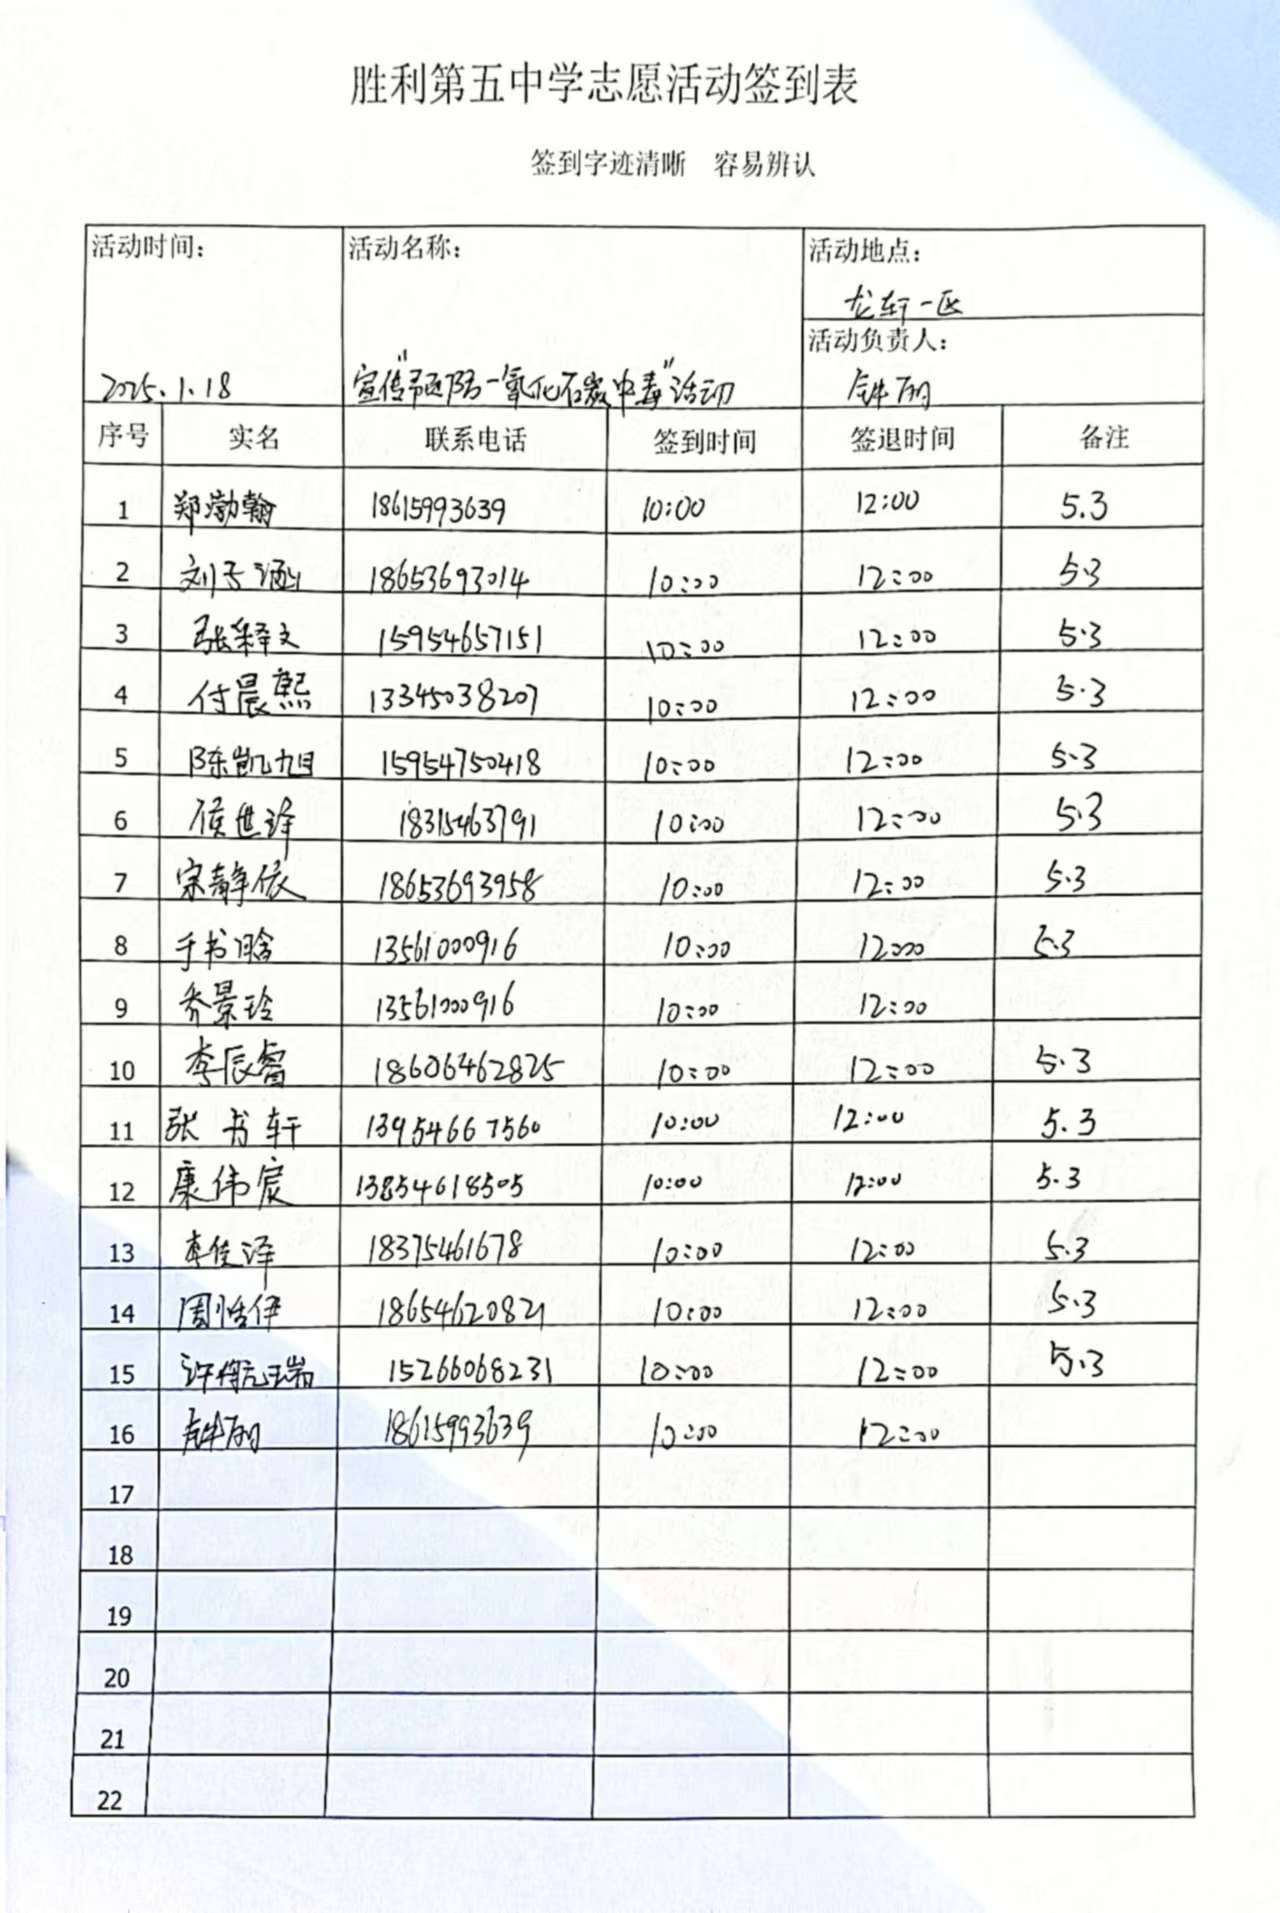 胜利第五中学志愿活动签到表
签到字迹清晰 容易辨认
活动时间: 活动名称: 活动地点:
龙轩一区
活动负责人:
2025.1.18 宣传"预防一氧化碳中毒"活动
序号 实名 联系电话 签到时间 签退时间 备注
1 郑渤翰 18615993639 10:00 12:00 5.3
2 刘子涵 18653693014 10:00 12:00 5.3
3 张释文 15954657151 10:00 12:00 5.3
4 付晨熙 13345038207 10:00 12:00 5.3
5 陈凯旭 15954750418 10:00 12:00 5.3
6 侯世泽 18315463791 10:00 12:00 5.3
7 宋静依 18653693958 10:00 12:00 5.3
8 于书晗 13561000916 10:00 12:00 5.3
9 乔景玲 13561000916 10:00 12:00
10 李辰睿 18606462825 10:00 12:00 5.3
11 张书轩 13954667560 10:00 12:00 5.3
12 康伟宸 13854618505 10:00 12:00 5.3
13 李佳泽 18375461678 10:00 12:00 5.3
14 周恬伊 18654620821 10:00 12:00 5.3
15 许航瑞 15266068231 10:00 12:00 5.3
16 18615993639 10:00 12:00
17
18
19
20
21
22